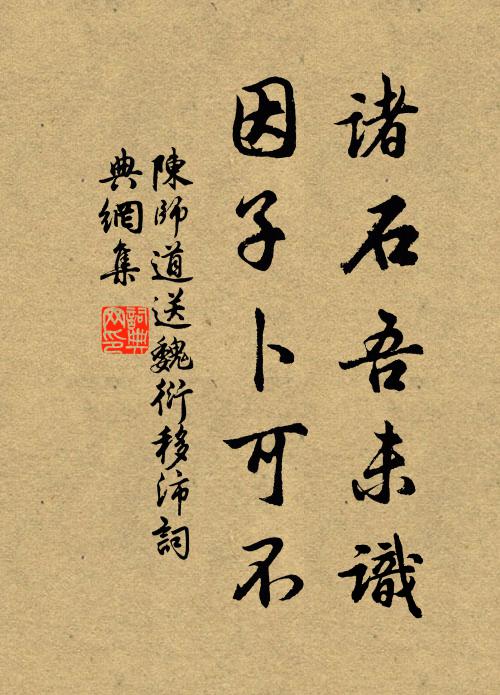 諸石吾未識
因子卜可不
陳師道送魏衍移沛詞
典網集
詞典
网印